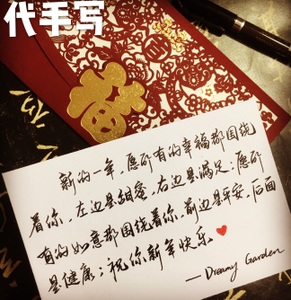 代手写
新的一年,愿所有的幸福都围绕
着你,左边是甜蜜,右边是满足;愿所
有的如意都围绕着你,前边是平安,后面
是健康;祝你新年快乐。
—Dreamy Garden